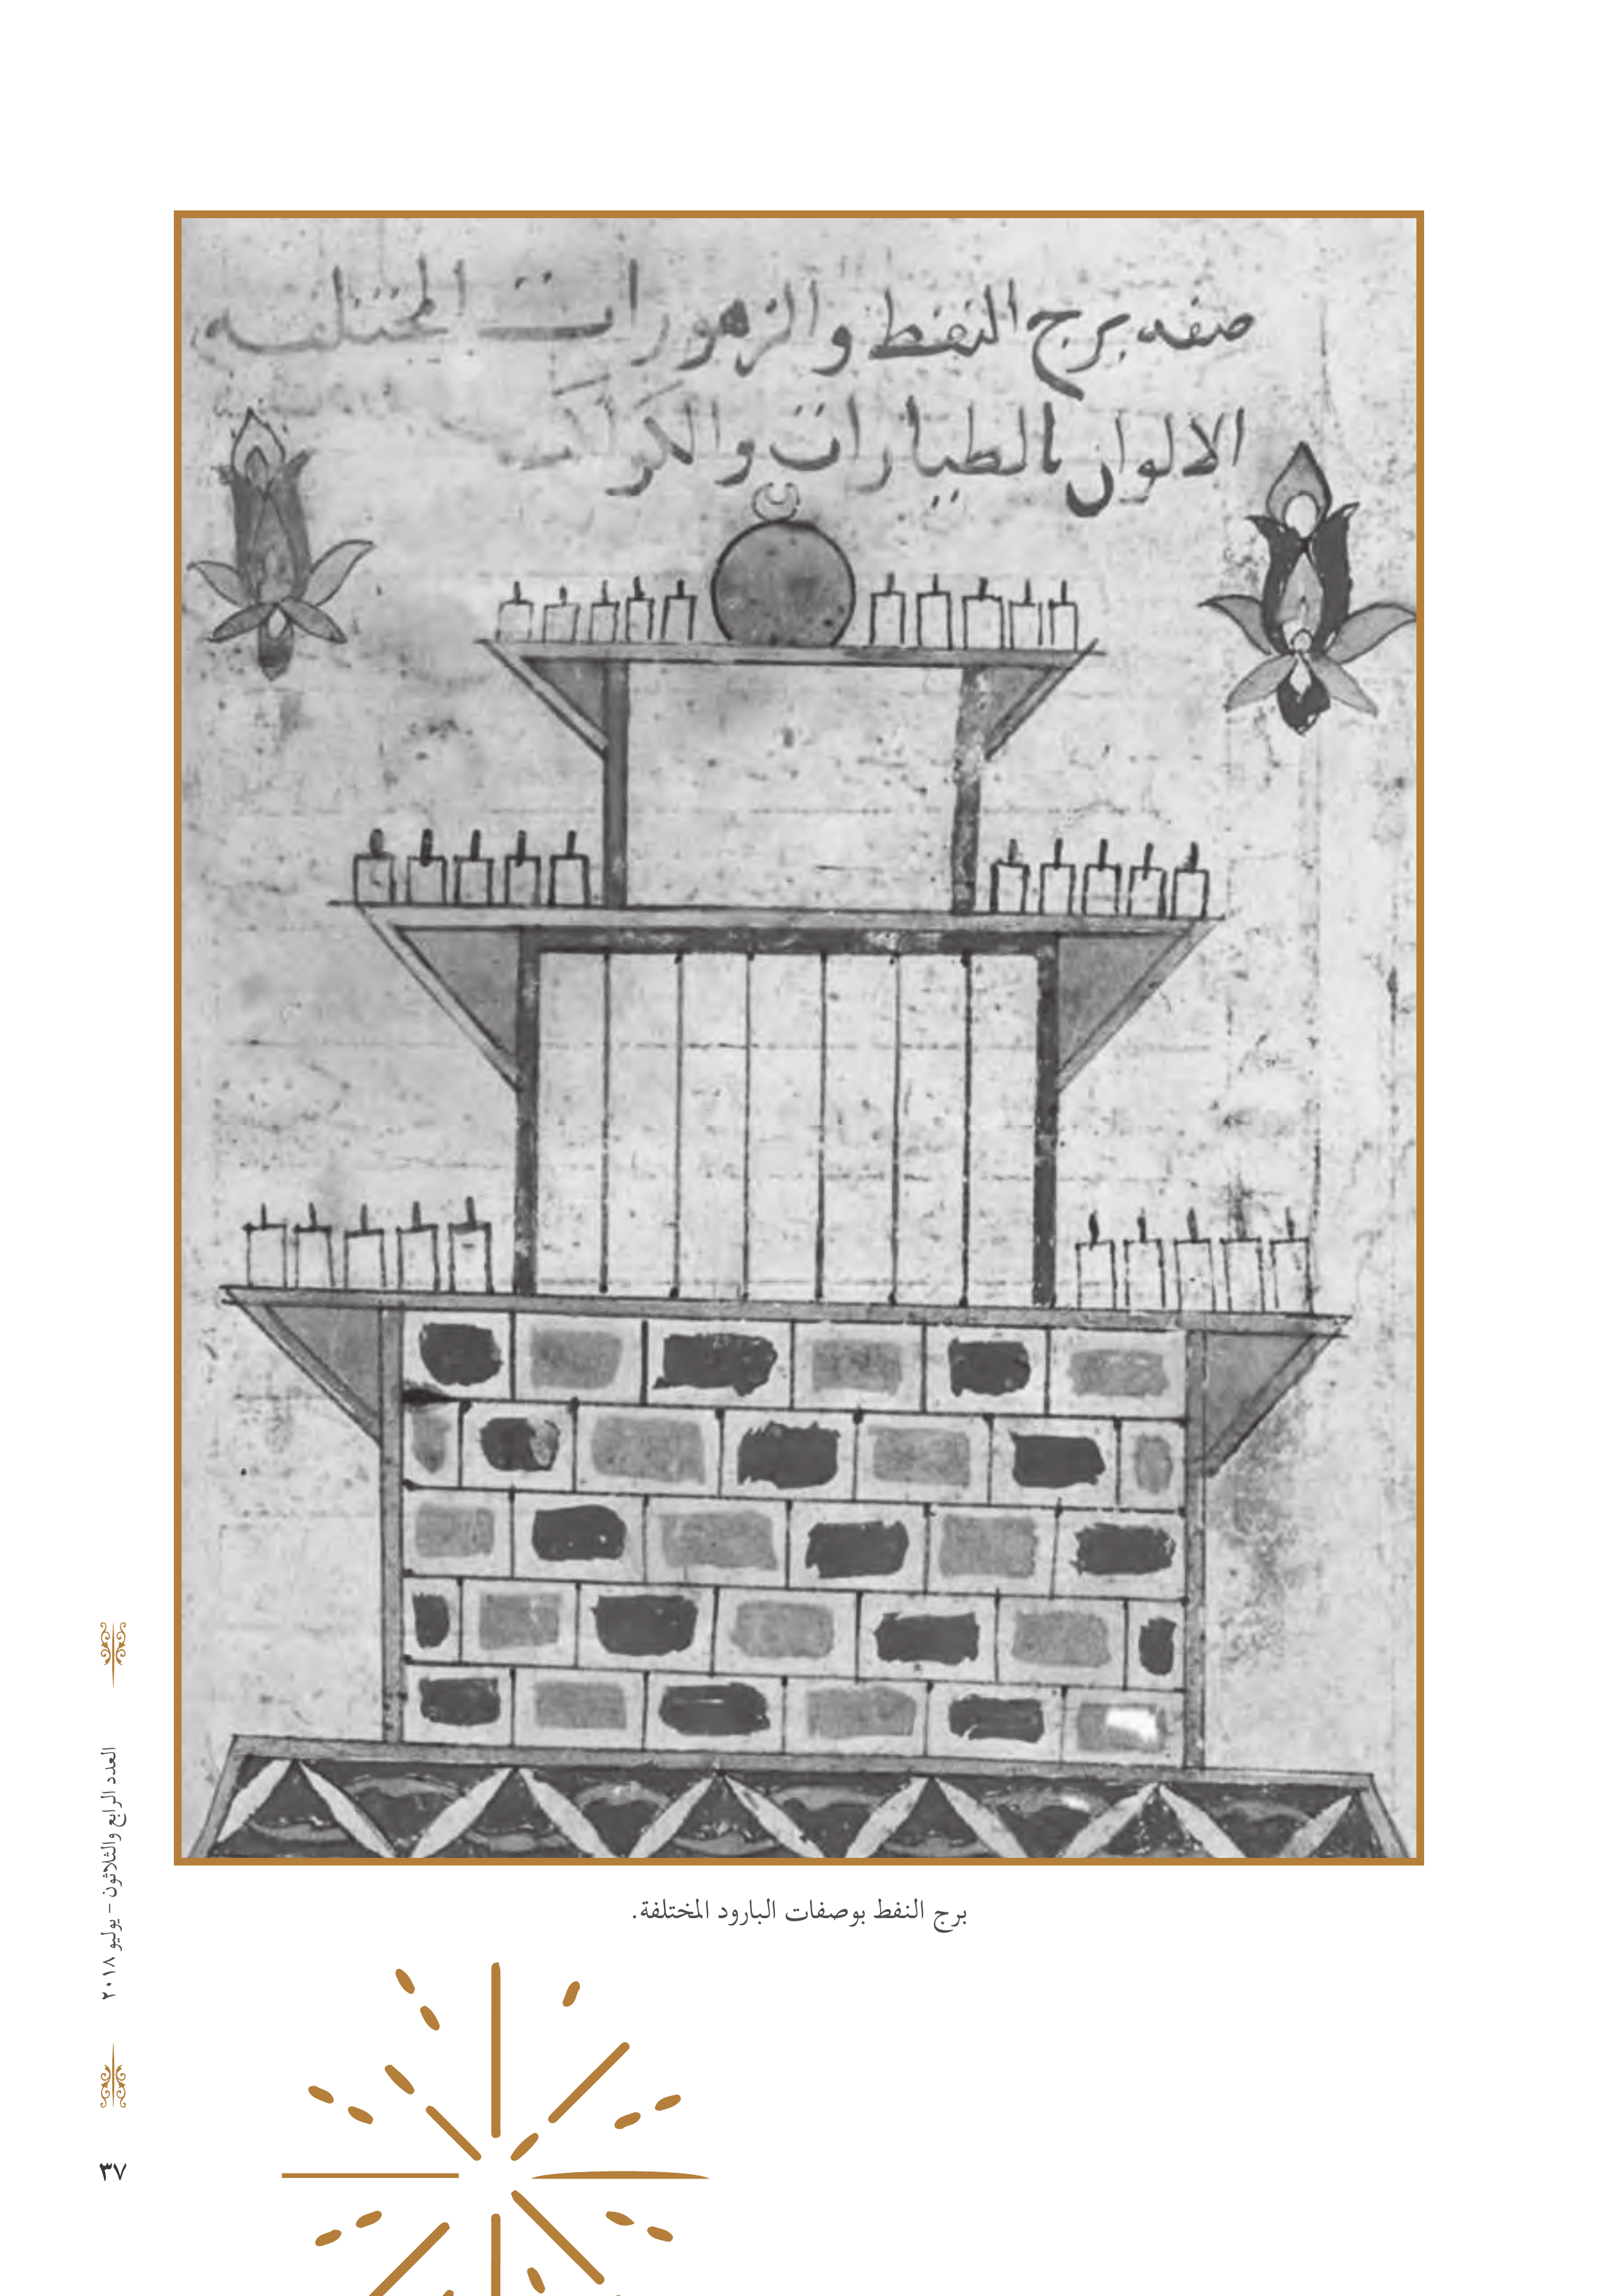 صفه برج النفط والزهورات المختلفه
الالوان بالطيارات والكواكب
برج النفط بوصفات البارود المختلفة.
العدد الرابع والثلاثون – يوليو ٢٠١٨
٣٧